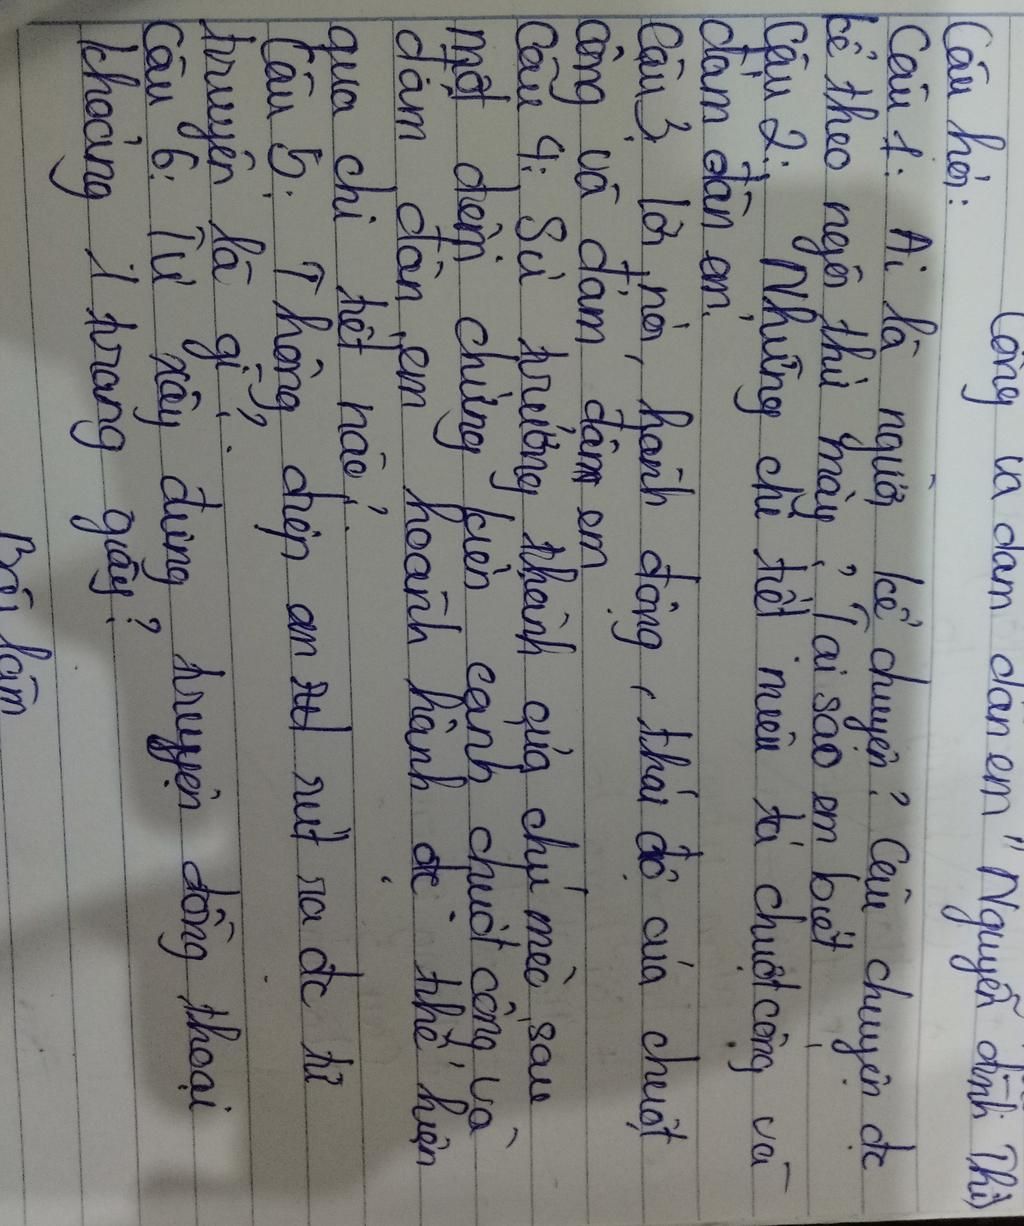 Cống và đám dàn em" Nguyễn đình Thi)
Câu hỏi:
Câu 1: Ai là người kể chuyện? Câu chuyện đc
kể theo ngôi thứ mấy? Tại sao em biết
Câu 2: Những chi tiết miêu tả chuột cống và
đám đàn em?
Câu 3 lời nói, hành động, thái độ của chuột
cống và đám đàn em
Câu 4: Sự trưởng thành của chú mèo, sau
một đêm chứng kiến cảnh chuột cống và
đám đàn em hoành hành đc thể hiện
qua chi tiết nào?
Câu 5: Thông điệp an rút ra đc từ
truyện là gì?
Câu 6: Tự xây dựng truyện đồng thoại
khoảng 1 trang giấy?
Bài làm